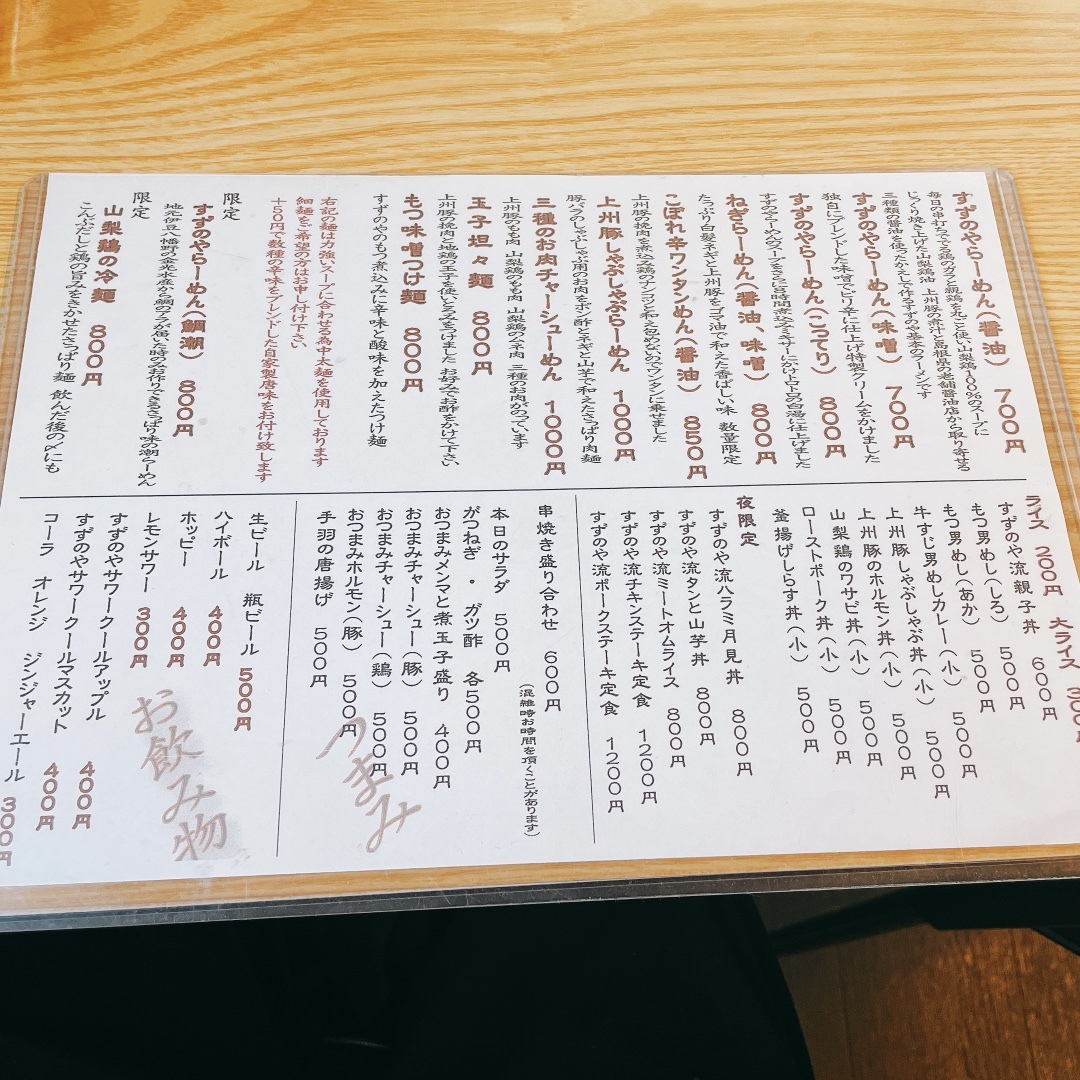 すずのやらーめん(醤油) 700円
毎日の串打ちででる鶏のガラと親鶏を丸ごと使い山梨鶏100%のスープに
じっくり焼き上げた山梨鶏油 上州豚の煮汁と島根県の老舗醤油店から取り寄せる
三種類の醤油を使ったかえしで作るすずのや基本のラーメンです
すずのやらーめん(味噌) 700円
独自にブレンドした味噌でピリ辛に仕上げ特製クリームをかけました
すずのやらーめん(こってり) 800円
すずのやらーめんのスープをさらに8時間煮込みミキサーにかけトロトロの白湯に仕上げました
ねぎらーめん(醤油、味噌) 800円
たっぷり白髪ネギと上州豚をゴマ油で和えた香ばしい味 数量限定
こぼれ辛ワンタンめん(醤油) 850円
上州豚の挽肉を煮込み鶏のナンコツと和え包めないのでワンタンに乗せました
上州豚しゃぶしゃぶらーめん 1000円
豚バラのしゃぶしゃぶ用のお肉をポン酢とネギと山芋で和えたさっぱり肉麺
三種のお肉チャーシューめん 1000円
上州豚のもも肉 山梨鶏のもも肉 山梨鶏のムネ肉 三種のお肉がのっています
玉子坦々麺 800円
上州豚の挽肉と地鶏の玉子を使いとろみをつけました お好みでお酢をかけて下さい
もつ味噌つけ麺 800円
すずのやのもつ煮込みに辛味と酸味を加えたつけ麺
右記の麺は力強いスープに合わせる為中太麺を使用しております
細麺をご希望の方はお申し付け下さい
+50円で数種の辛味をブレンドした自家製唐味をお付け致します
限定
すずのやらーめん(鯛潮) 800円
地元伊豆八幡野の金光水産から鯛のアラが届いた時のみお作りできるさっぱり味の潮らーめん
限定
山梨鶏の冷麺 800円
こんぶだしと鶏の旨みをきかせたさっぱり麺 飲んだ後の〆にも
ライス 200円 大ライス 300円
すずのや流親子丼 600円
もつ男めし(しろ) 500円
もつ男めし(あか) 500円
牛すじ男めしカレー(小) 500円
上州豚しゃぶしゃぶ丼(小) 500円
上州豚のホルモン丼(小) 500円
山梨鶏のワサビ丼(小) 500円
ローストポーク丼(小)
釜揚げしらす丼(小) 500円
夜限定
すずのや流ハラミ月見丼 800円
すずのや流タンと山芋丼 800円
すずのや流ミートオムライス 800円
すずのや流チキンステーキ定食 1200円
すずのや流ポークステーキ定食 1200円
串焼き盛り合わせ 600円
(混雑時お時間を頂くことがあります)
本日のサラダ 500円
がつねぎ・ガツ酢 各500円
おつまみメンマと煮玉子盛り 400円
おつまみチャーシュー(豚) 500円
おつまみチャーシュー(鶏) 500円
おつまみホルモン(豚) 500円
手羽の唐揚げ 500円
つまみ
生ビール 瓶ビール 500円
ハイボール 400円
ホッピー 400円
レモンサワー 300円
すずのやサワークールアップル 400円
すずのやサワークールマスカット 400円
コーラ オレンジ ジンジャーエール 300円
お飲み物